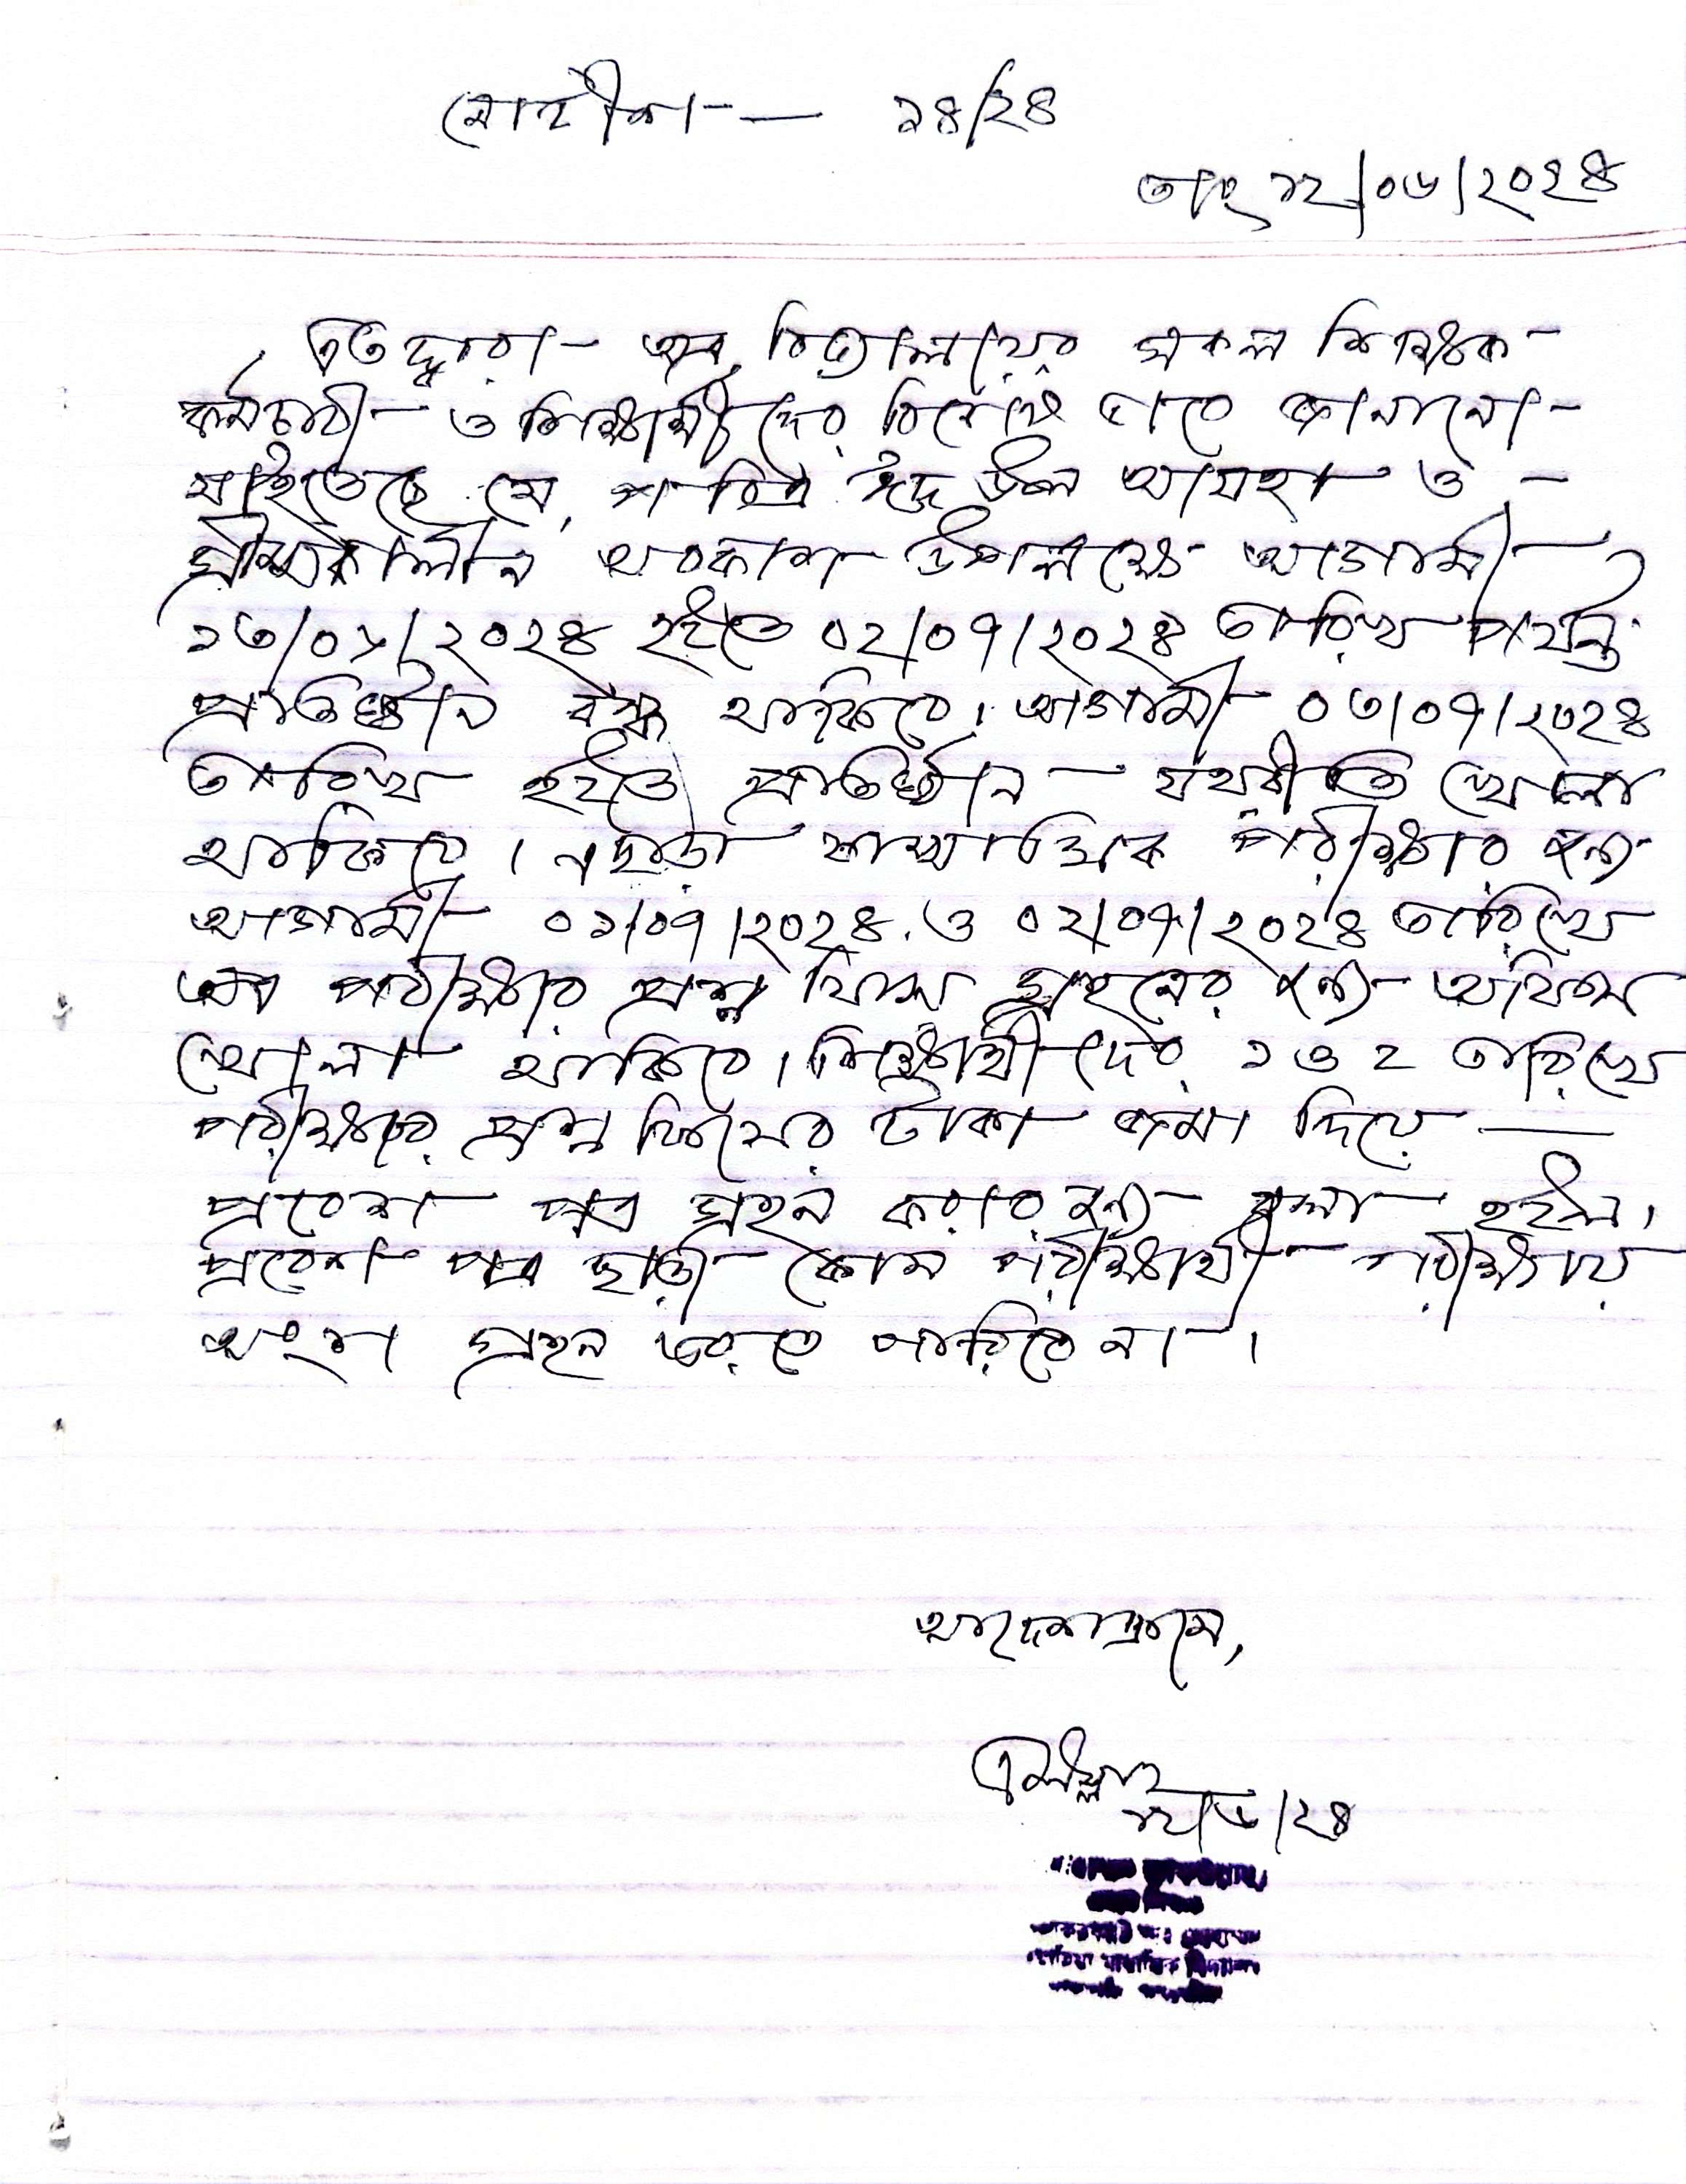 নোটীশ — ১৪/২৪
তাং ১২/০৬/২০২৪
এতদ্বারা অত্র বিদ্যালয়ের সকল শিক্ষক
কর্মচারী ও শিক্ষার্থীদের বিশেষ ভাবে জানানো
যাইতেছে যে, পবিত্র ঈদ উল আযহা ও -
গ্রীষ্মকালীন অবকাশ উপলক্ষে আগামী
১৩/০৬/২০২৪ হইতে ০২/০৭/২০২৪ তারিখ পর্যন্ত
প্রতিষ্ঠান বন্ধ থাকিবে। আগামী ০৩/০৭/২০২৪
তারিখ হইতে প্রতিষ্ঠান যথারীতি খোলা
থাকিবে। এছাড়া ষান্মাসিক পরীক্ষার জন্য
আগামী ০১/০৭/২০২৪ ও ০২/০৭/২০২৪ তারিখে
অত্র পরীক্ষার প্রশ্ন ফিস গ্রহনের জন্য অফিস
খোলা থাকিবে। শিক্ষার্থীদের ১ ও ২ তারিখে
পরীক্ষার প্রশ্ন ফিসের টাকা জমা দিয়ে —
প্রবেশ পত্র গ্রহন করার জন্য বলা হইল।
প্রবেশ পত্র ছাড়া কোন পরীক্ষার্থী পরীক্ষায়
অংশ গ্রহন করতে পারিবে না।
আদেশক্রমে,
১২/৬/২৪
মাধ্যমিক বিদ্যালয়